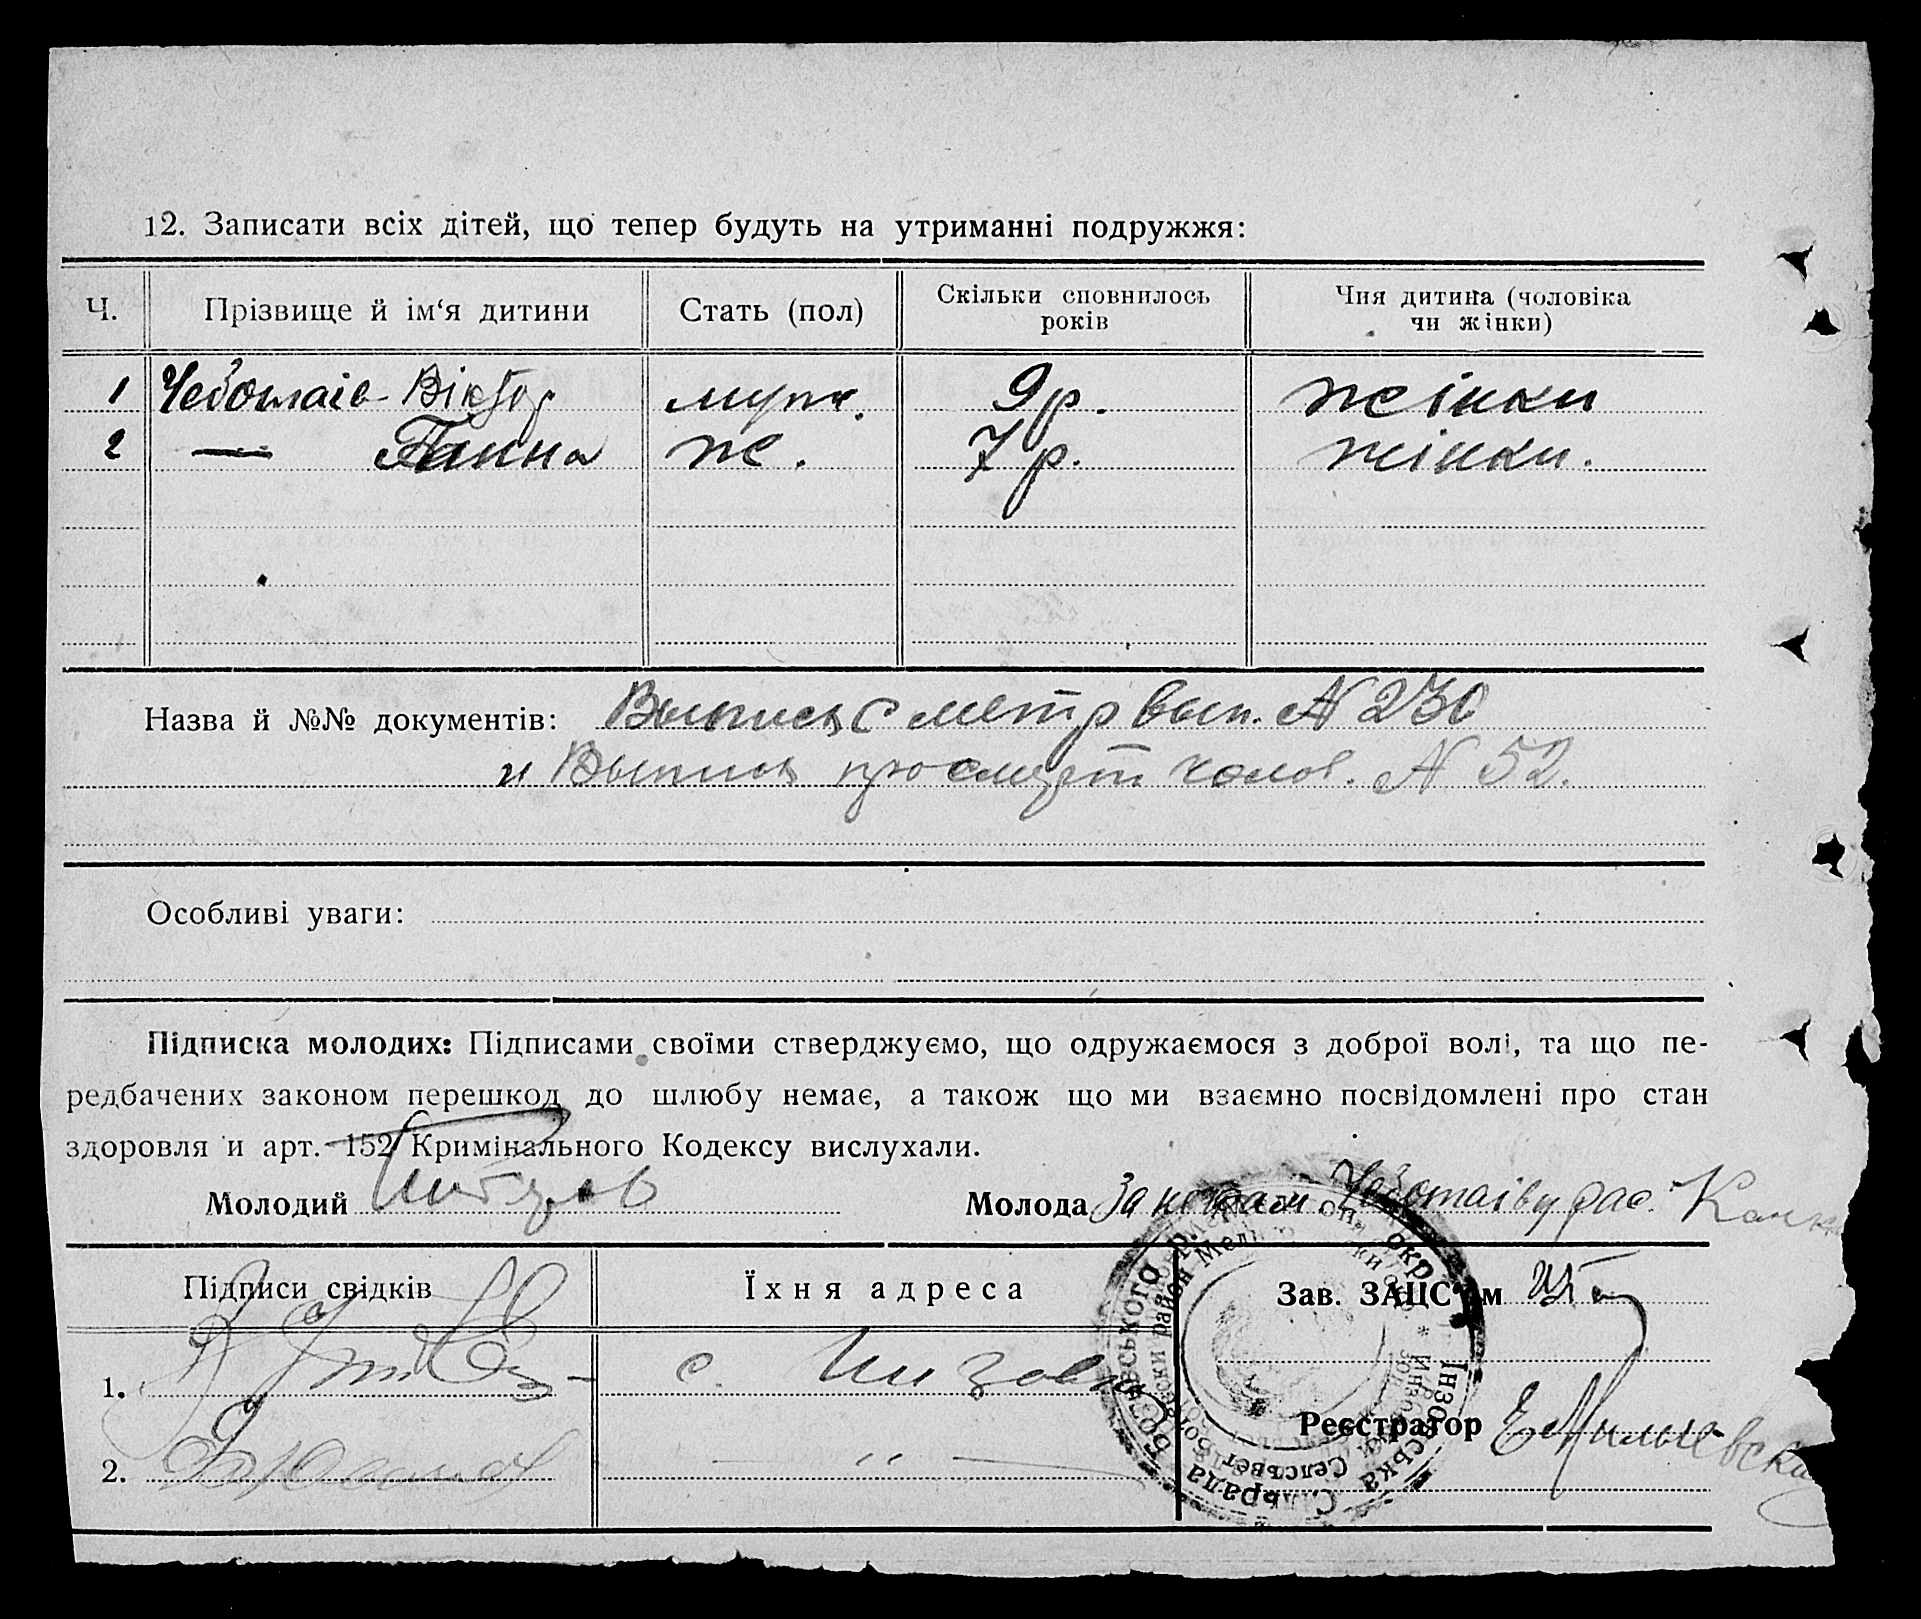 12. Записати всіх дітей, що тепер будуть на утриманні подружжя:
Ч. Прізвище й ім‘я дитини Стать (пол) Скільки сповнилось років Чия дитина (чоловіка чи жінки)
1 Чеботаів Віктор муж. 9 р. жінки
2 — Ганна ж. 7 р. жінки.
Назва й №№ документів: Выпись с метр вып. № 230
и Выпись про смерт. чолов. № 52.
Особливі уваги:
Підписка молодих: Підписами своїми стверджуємо, що одружаємося з доброї волі, та що пе-
редбачених законом перешкод до шлюбу немає, а також що ми взаємно посвідомлені про стан
здоровля и арт. 152 Кримінального Кодексу вислухали.
Молодий
Молода За неграм. Чеботаіву рас.
Підписи свідків Їхня адреса Зав. ЗАЦС'ом
1. с.
2. — " —
Реєстратор
Інзовська Сільрада
Сельсовет
район
окр.